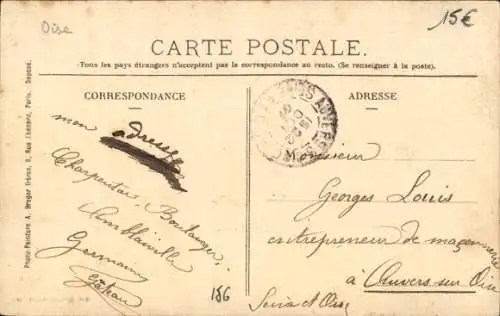 Oise
15€
CARTE POSTALE.
Tous les pays étrangers n'acceptent pas la correspondance au recto. (Se renseigner à la poste).
CORRESPONDANCE
ADRESSE
Photo-Peinture A. Breger frères, 9, Rue Thénard, Paris. Déposé.
mon adresse
Charpentier, Boulanger,
Amblainville
Germaine
Gateau
186
Monsieur
Georges Louis
entrepreneur de maçonnerie
à Auvers sur Oise
Seine et Oise